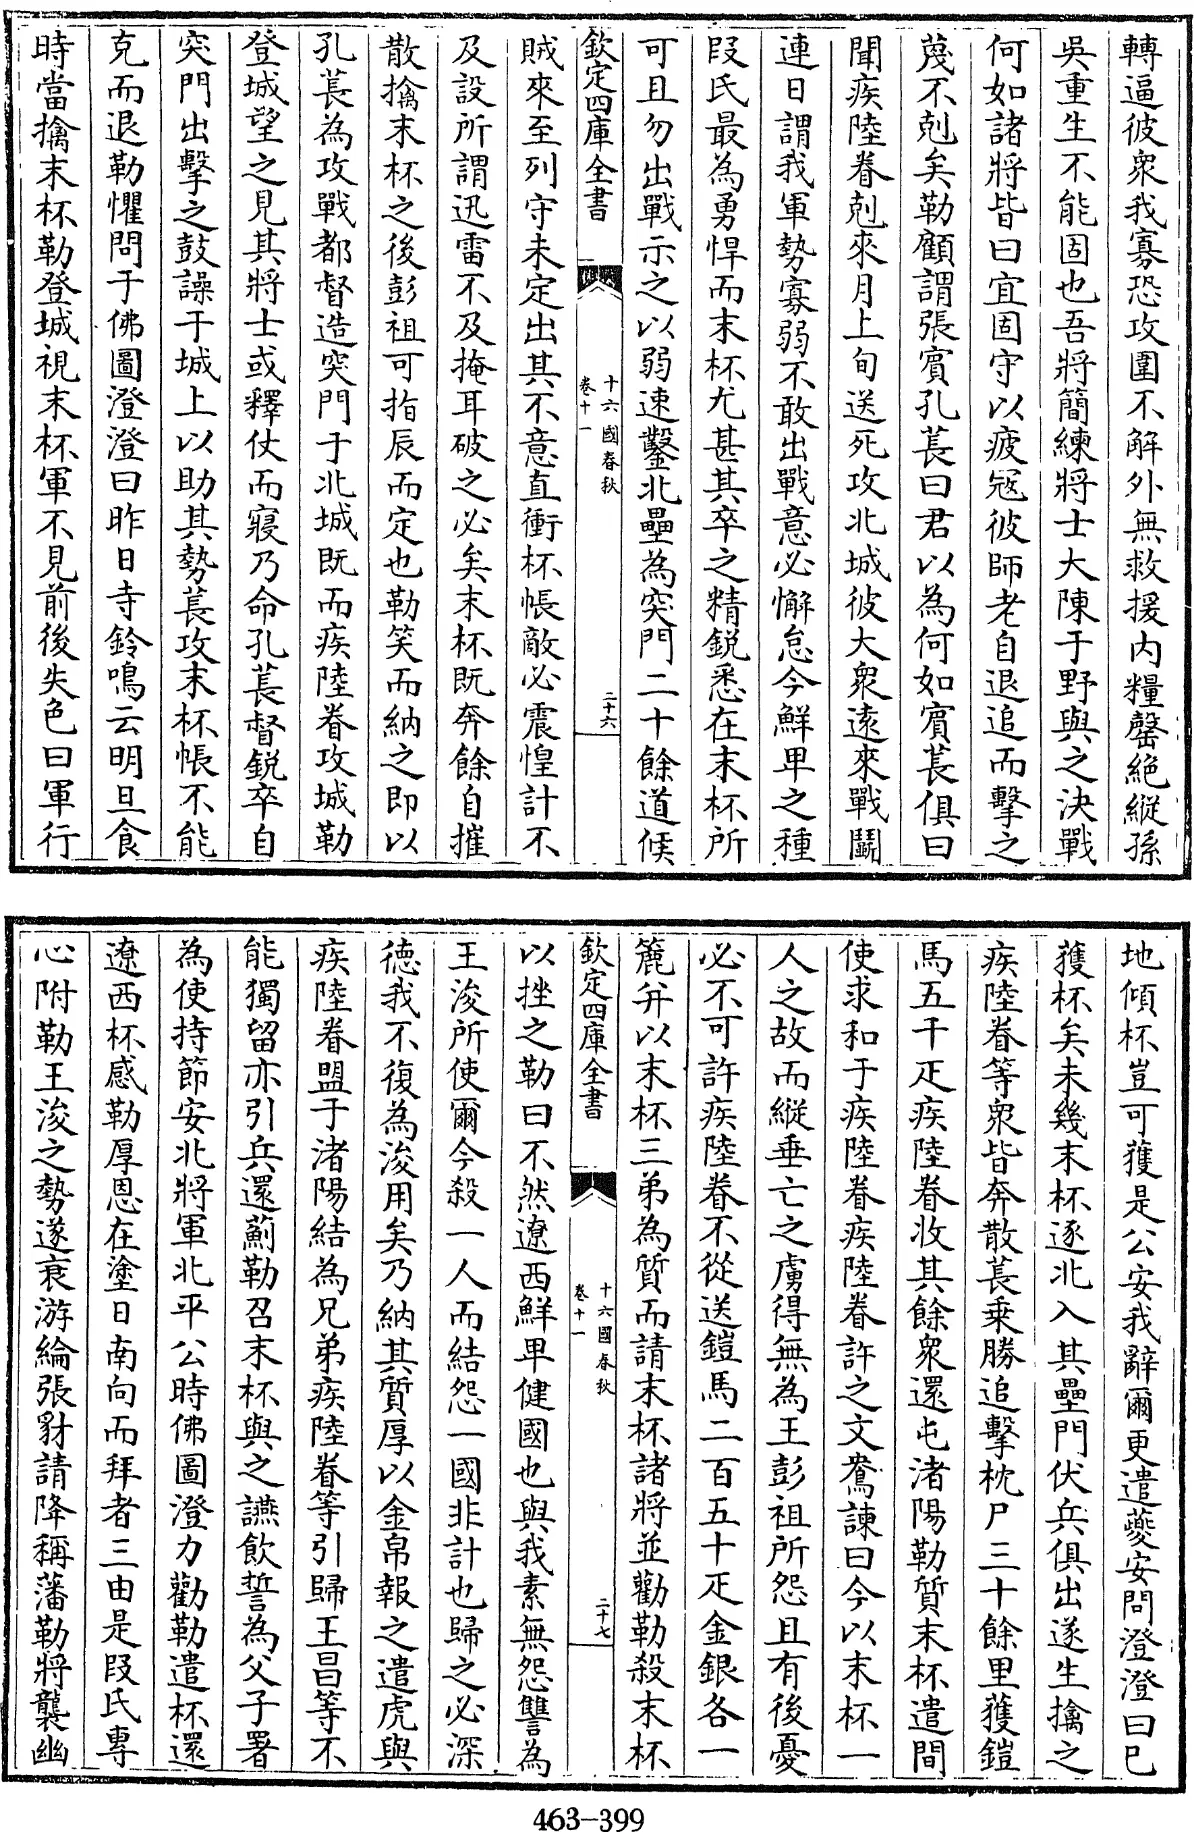 轉逼彼衆我寡恐攻圍不解外無救援内糧罄絶縱孫
吳重生不能固也吾將簡練將士大陳于野與之決戰
何如諸將皆曰宜固守以疲寇彼師老自退追而擊之
蔑不剋矣勒顧謂張賔孔萇曰君以為何如賔萇俱曰
聞疾陸眷剋來月上旬送死攻北城彼大衆逺來戰鬭
連日謂我軍勢寡弱不敢出戰意必懈怠今鮮卑之種
段氏最為勇悍而末杯尤甚其卒之精鋭悉在末杯所
可且勿出戰示之以弱速鑿北壘為突門二十餘道候
欽定四庫全書
十六國春秋
卷十一
二十六
賊來至列守未定出其不意直衝杯帳敵必震惶計不
及設所謂迅雷不及掩耳破之必矣末杯既奔餘自摧
散擒末杯之後彭祖可指辰而定也勒笑而納之即以
孔萇為攻戰都督造突門于北城既而疾陸眷攻城勒
登城望之見其將士或釋仗而寢乃命孔萇督鋭卒自
突門出擊之鼓譟于城上以助其勢萇攻末杯帳不能
克而退勒懼問于佛圖澄澄曰昨日寺鈴鳴云明旦食
時當擒末杯勒登城視末杯軍不見前後失色曰軍行
地傾杯豈可獲是公安我辭爾更遣夔安問澄澄曰已
獲杯矣未幾末杯逐北入其壘門伏兵俱出遂生擒之
疾陸眷等衆皆奔散萇乗勝追擊枕尸三十餘里獲鎧
馬五千疋疾陸眷收其餘衆還屯渚陽勒質末杯遣間
使求和于疾陸眷疾陸眷許之文鴦諫曰今以末杯一
人之故而縱垂亡之虜得無為王彭祖所怨且有後憂
必不可許疾陸眷不從送鎧馬二百五十疋金銀各一
簏并以末杯三弟為質而請末杯諸將並勸勒殺末杯
欽定四庫全書
十六國春秋
卷十一
二十七
以挫之勒曰不然遼西鮮卑健國也與我素無怨讐為
王浚所使爾今殺一人而結怨一國非計也歸之必深
德我不復為浚用矣乃納其質厚以金帛報之遣虎與
疾陸眷盟于渚陽結為兄弟疾陸眷等引歸王昌等不
能獨留亦引兵還薊勒召末杯與之讌飲誓為父子署
為使持節安北將軍北平公時佛圖澄力勸勒遣杯還
遼西杯感勒厚恩在塗日南向而拜者三由是段氏専
心附勒王浚之勢遂衰游綸張豺請降稱藩勒將襲幽
463-399